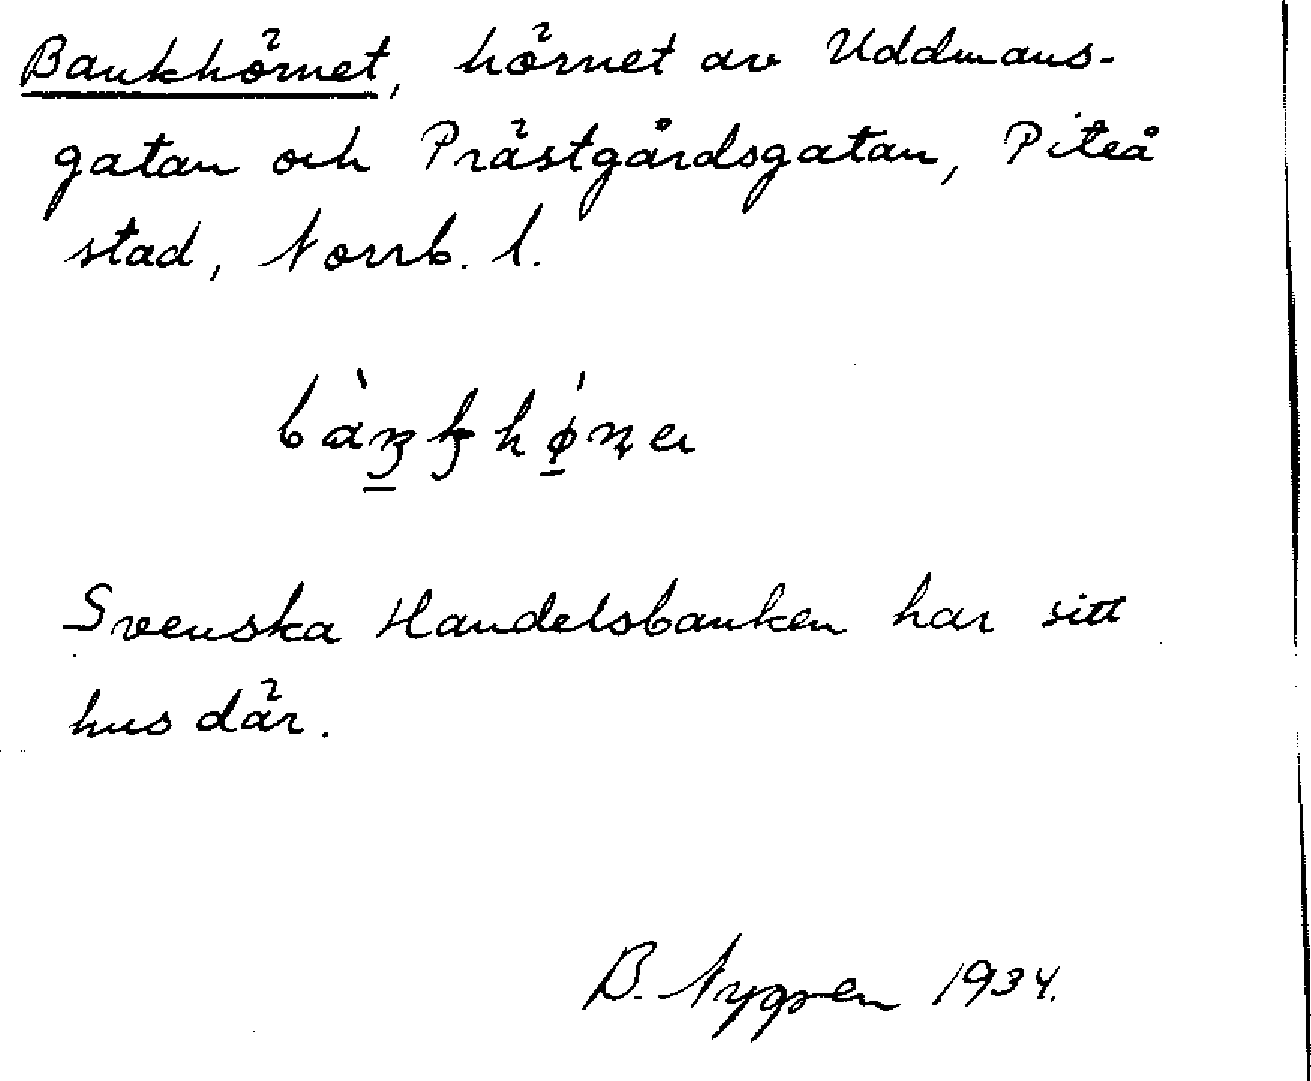 Bankhörnet, hörnet av Uddmans-
gatan och Prästgårdsgatan, Piteå
stad, Norrb. l.
Svenska Handelsbanken har sitt
hus där.
B. Nygren 1934.